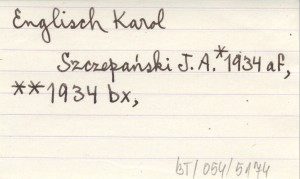 Englisch Karol
Szczepański J. A.*1934 af,
**1934 bx,
BT/054/5174